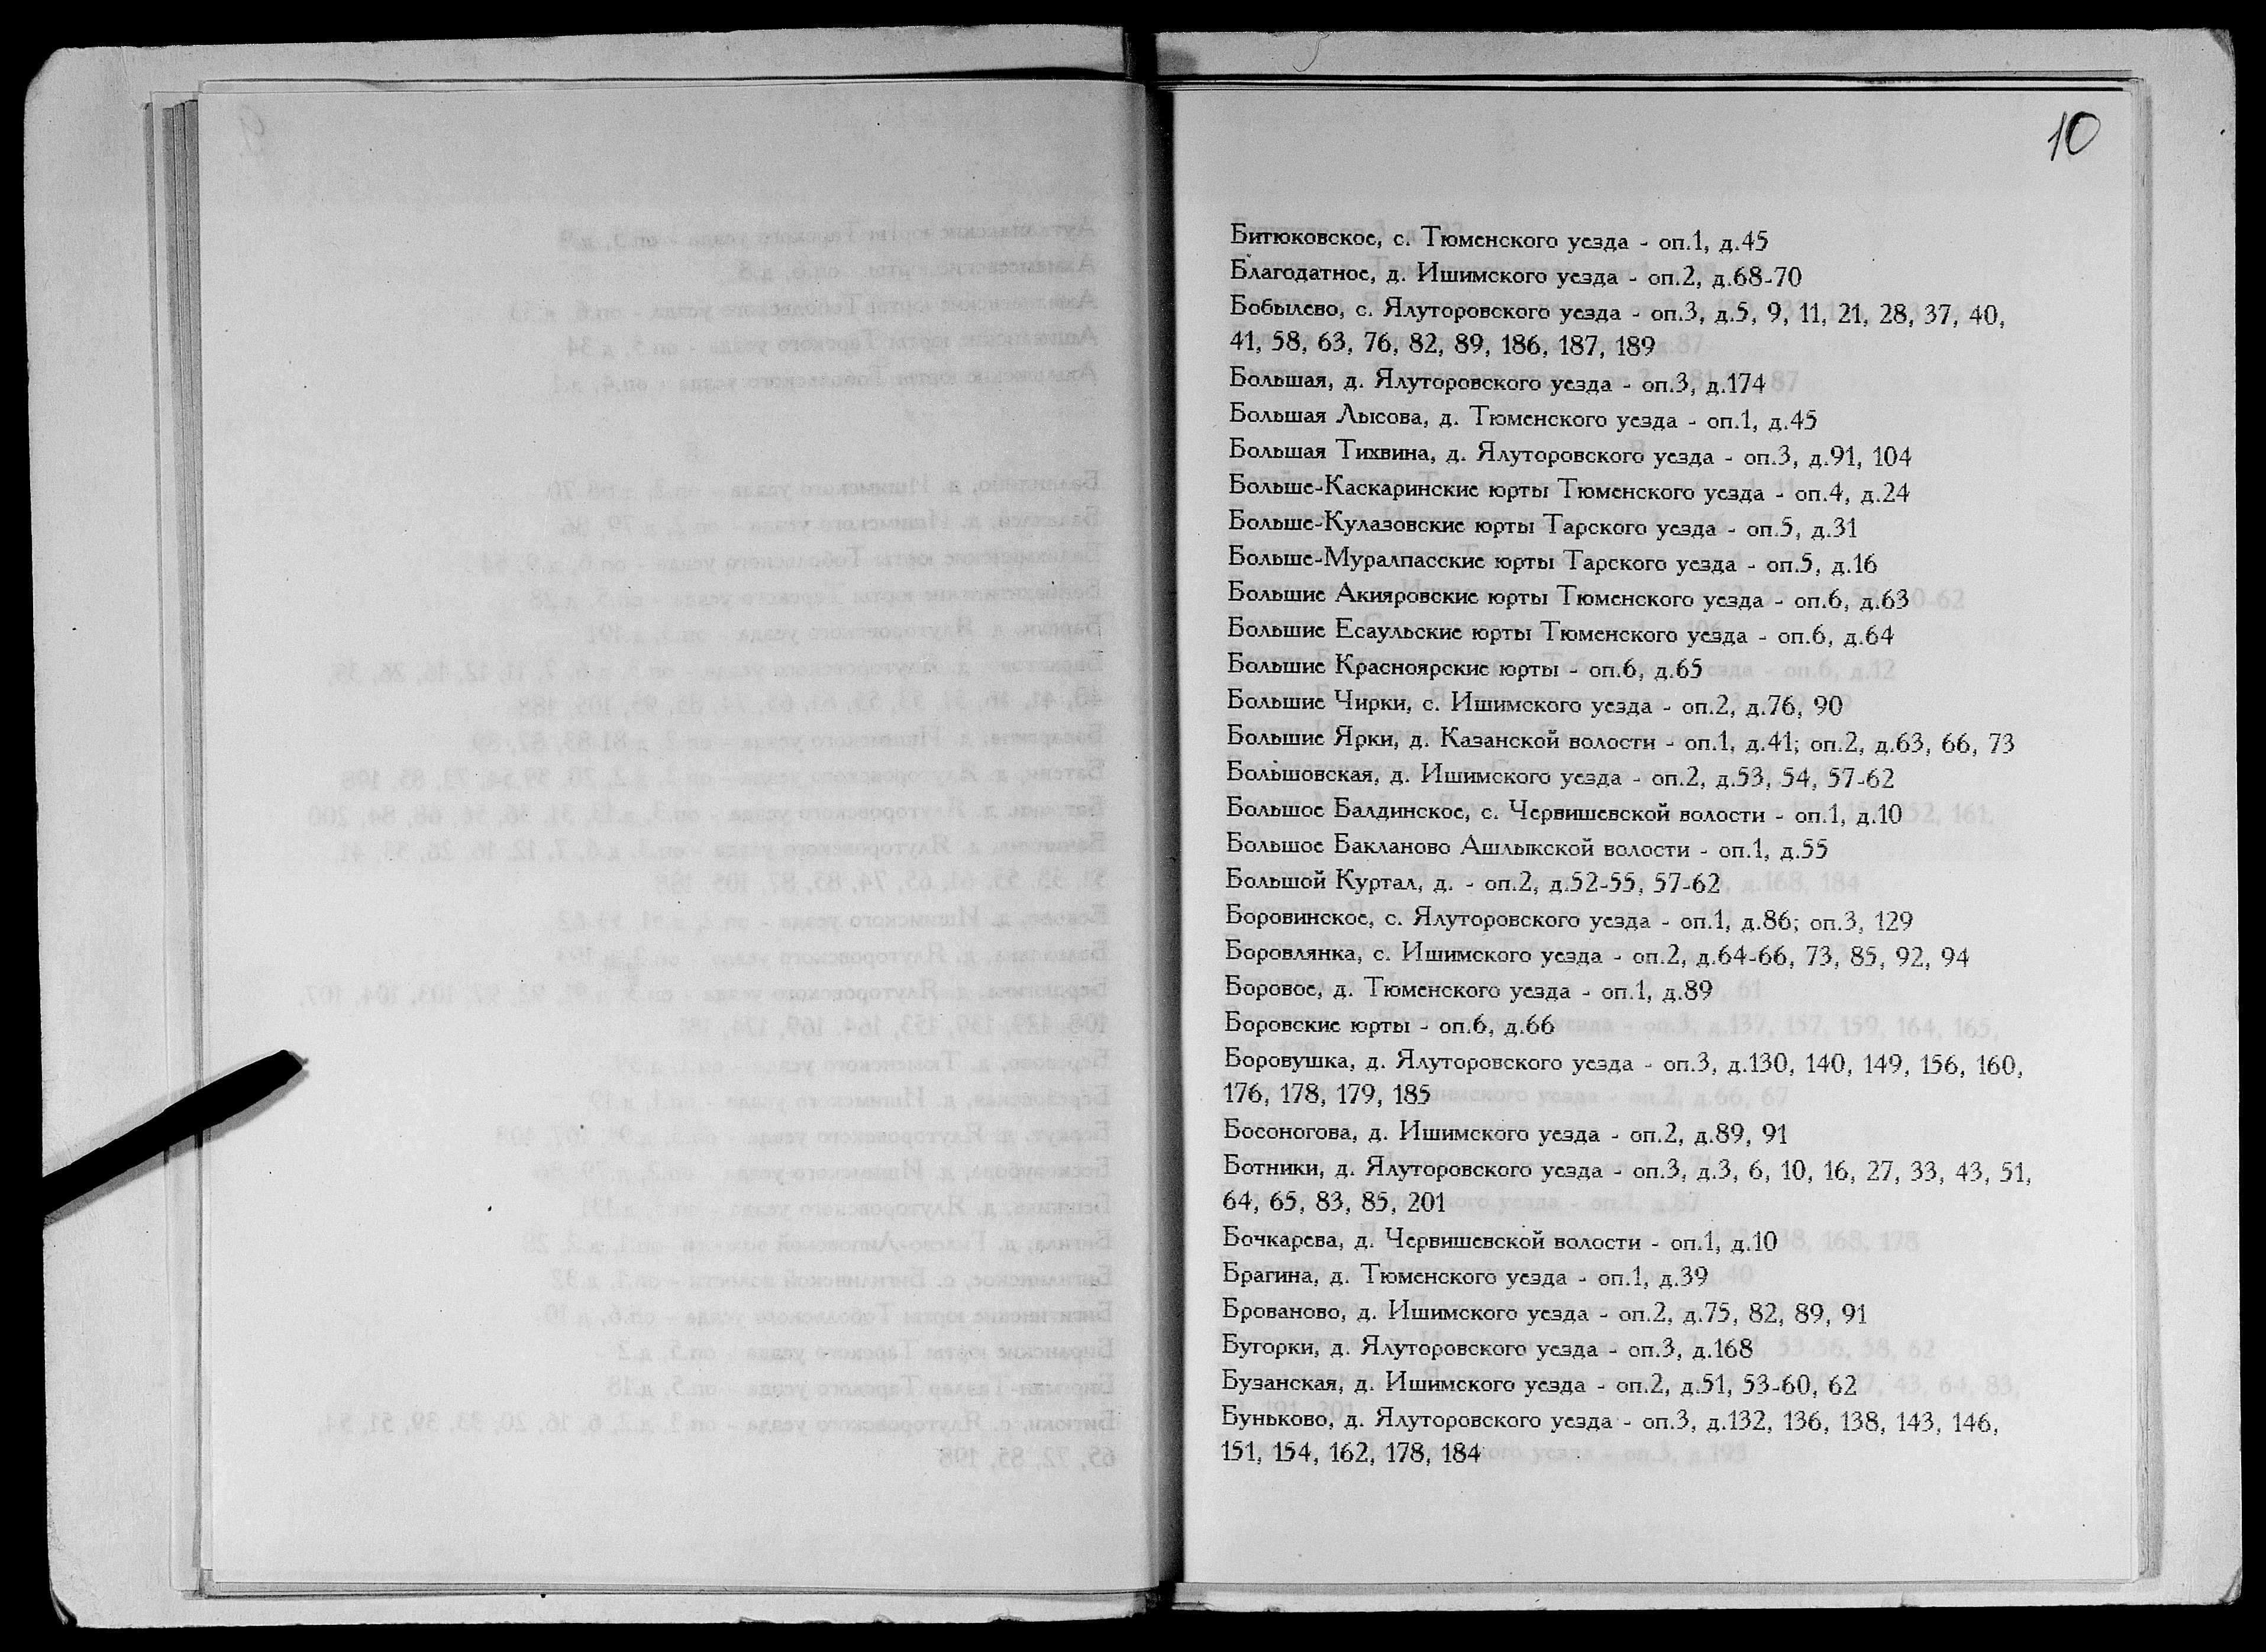 10
Битюковское, с. Тюменского уезда - оп.1, д.45
Благодатное, д. Ишимского уезда - оп.2, д.68-70
Бобылево, с. Ялуторовского уезда - оп.3, д.5, 9, 11, 21, 28, 37, 40,
41, 58, 63, 76, 82, 89, 186, 187, 189
Большая, д. Ялуторовского уезда - оп.3, д.174
Большая Лысова, д. Тюменского уезда - оп.1, д.45
Большая Тихвина, д. Ялуторовского уезда - оп.3, д.91, 104
Больше-Каскаринские юрты Тюменского уезда - оп.4, д.24
Больше-Кулазовские юрты Тарского уезда - оп.5, д.31
Больше-Муралпасские юрты Тарского уезда - оп.5, д.16
Большие Акияровские юрты Тюменского уезда - оп.6, д.63
Большие Есаульские юрты Тюменского уезда - оп.6, д.64
Большие Красноярские юрты - оп.6, д.65
Большие Чирки, с. Ишимского уезда - оп.2, д.76, 90
Большие Ярки, д. Казанской волости - оп.1, д.41; оп.2, д.63, 66, 73
Большовская, д. Ишимского уезда - оп.2, д.53, 54, 57-62
Большое Балдинское, с. Червишевской волости - оп.1, д.10
Большое Бакланово Ашлыкской волости - оп.1, д.55
Большой Куртал, д. - оп.2, д.52-55, 57-62
Боровинское, с. Ялуторовского уезда - оп.1, д.86; оп.3, 129
Боровлянка, с. Ишимского уезда - оп.2, д.64-66, 73, 85, 92, 94
Боровое, д. Тюменского уезда - оп.1, д.89
Боровские юрты - оп.6, д.66
Боровушка, д. Ялуторовского уезда - оп.3, д.130, 140, 149, 156, 160,
176, 178, 179, 185
Босоногова, д. Ишимского уезда - оп.2, д.89, 91
Ботники, д. Ялуторовского уезда - оп.3, д.3, 6, 10, 16, 27, 33, 43, 51,
64, 65, 83, 85, 201
Бочкарева, д. Червишевской волости - оп.1, д.10
Брагина, д. Тюменского уезда - оп.1, д.39
Брованово, д. Ишимского уезда - оп.2, д.75, 82, 89, 91
Бугорки, д. Ялуторовского уезда - оп.3, д.168
Бузанская, д. Ишимского уезда - оп.2, д.51, 53-60, 62
Буньково, д. Ялуторовского уезда - оп.3, д.132, 136, 138, 143, 146,
151, 154, 162, 178, 184